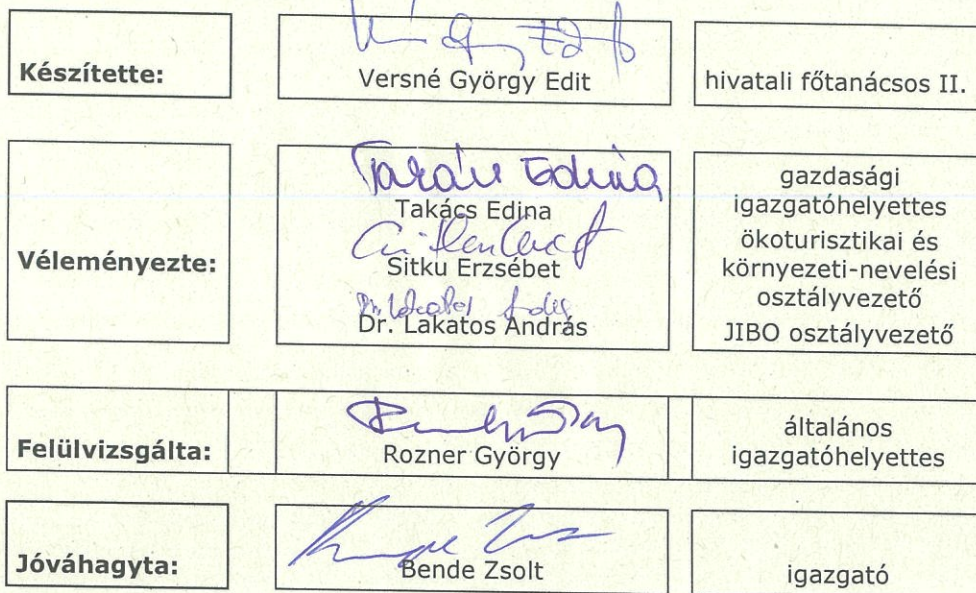 Készítette:
Versné György Edit
hivatali főtanácsos II.
Véleményezte:
Takács Edina
Takács Edina
gazdasági
igazgatóhelyettes
Sitku Erzsébet
ökoturisztikai és
környezeti-nevelési
osztályvezető
Dr. Lakatos András
JIBO osztályvezető
Felülvizsgálta:
Rozner György
általános
igazgatóhelyettes
Jóváhagyta:
Bende Zsolt
igazgató